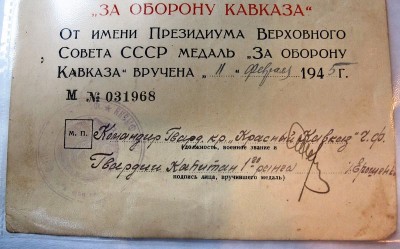 „ЗА ОБОРОНУ КАВКАЗА“
От имени Президиума Верховного
Совета СССР медаль „За оборону
Кавказа“ вручена „11“ февраля 1945г.
М № 031968
М. П.
Командир Гвард. кр. „Красный Кавказ“ Ч.Ф.
(должность, военное звание и
Гвардии Капитан 1го ранга
подпись лица, вручившего медаль)